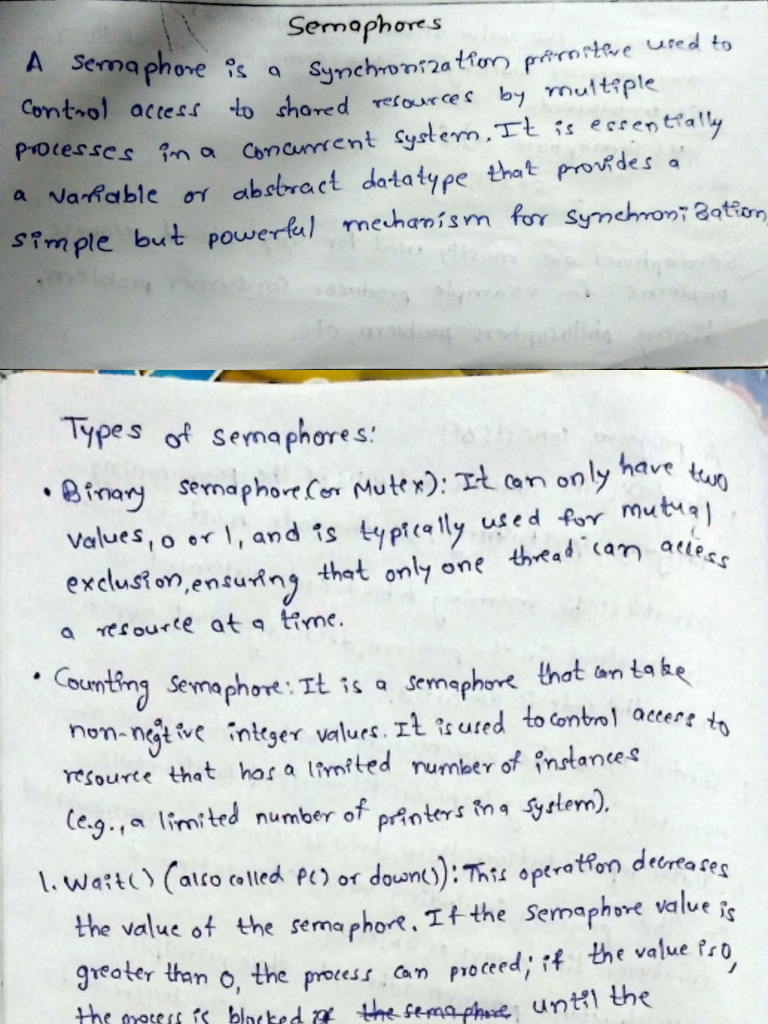 Semaphores
A semaphore is a synchronization primitive used to
control access to shared resources by multiple
processes in a concurrent system. It is essentially
a variable or abstract datatype that provides a
simple but powerful mechanism for synchronization,
Types of semaphores:
• Binary semaphore(or Mutex): It can only have two
values, 0 or 1, and is typically used for mutual
exclusion, ensuring that only one thread can access
a resource at a time.
• Counting semaphore: It is a semaphore that can take
non-negtive integer values. It is used to control access to
resource that has a limited number of instances
(e.g., a limited number of printers in a system).
1. Wait() (also called P() or down()): This operation decreases
the value of the semaphore. If the semaphore value is
greater than 0, the process can proceed; if the value is 0,
the process is blocked the semaphore until the